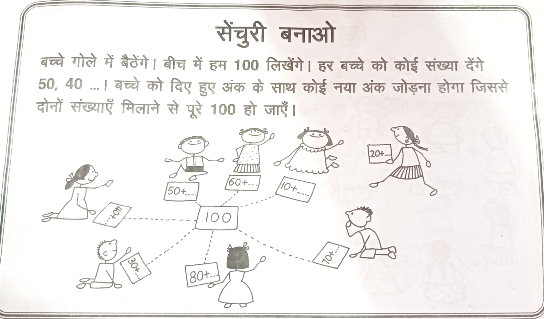 सेंचुरी बनाओ
बच्चे गोले में बैठेंगे। बीच में हम 100 लिखेंगे। हर बच्चे को कोई संख्या देंगे
50, 40 ...। बच्चे को दिए हुए अंक के साथ कोई नया अंक जोड़ना होगा जिससे
दोनों संख्याएँ मिलाने से पूरे 100 हो जाएँ।
20+...
50+...
60+...
10+...
40+...
100
30+...
80+...
70+...